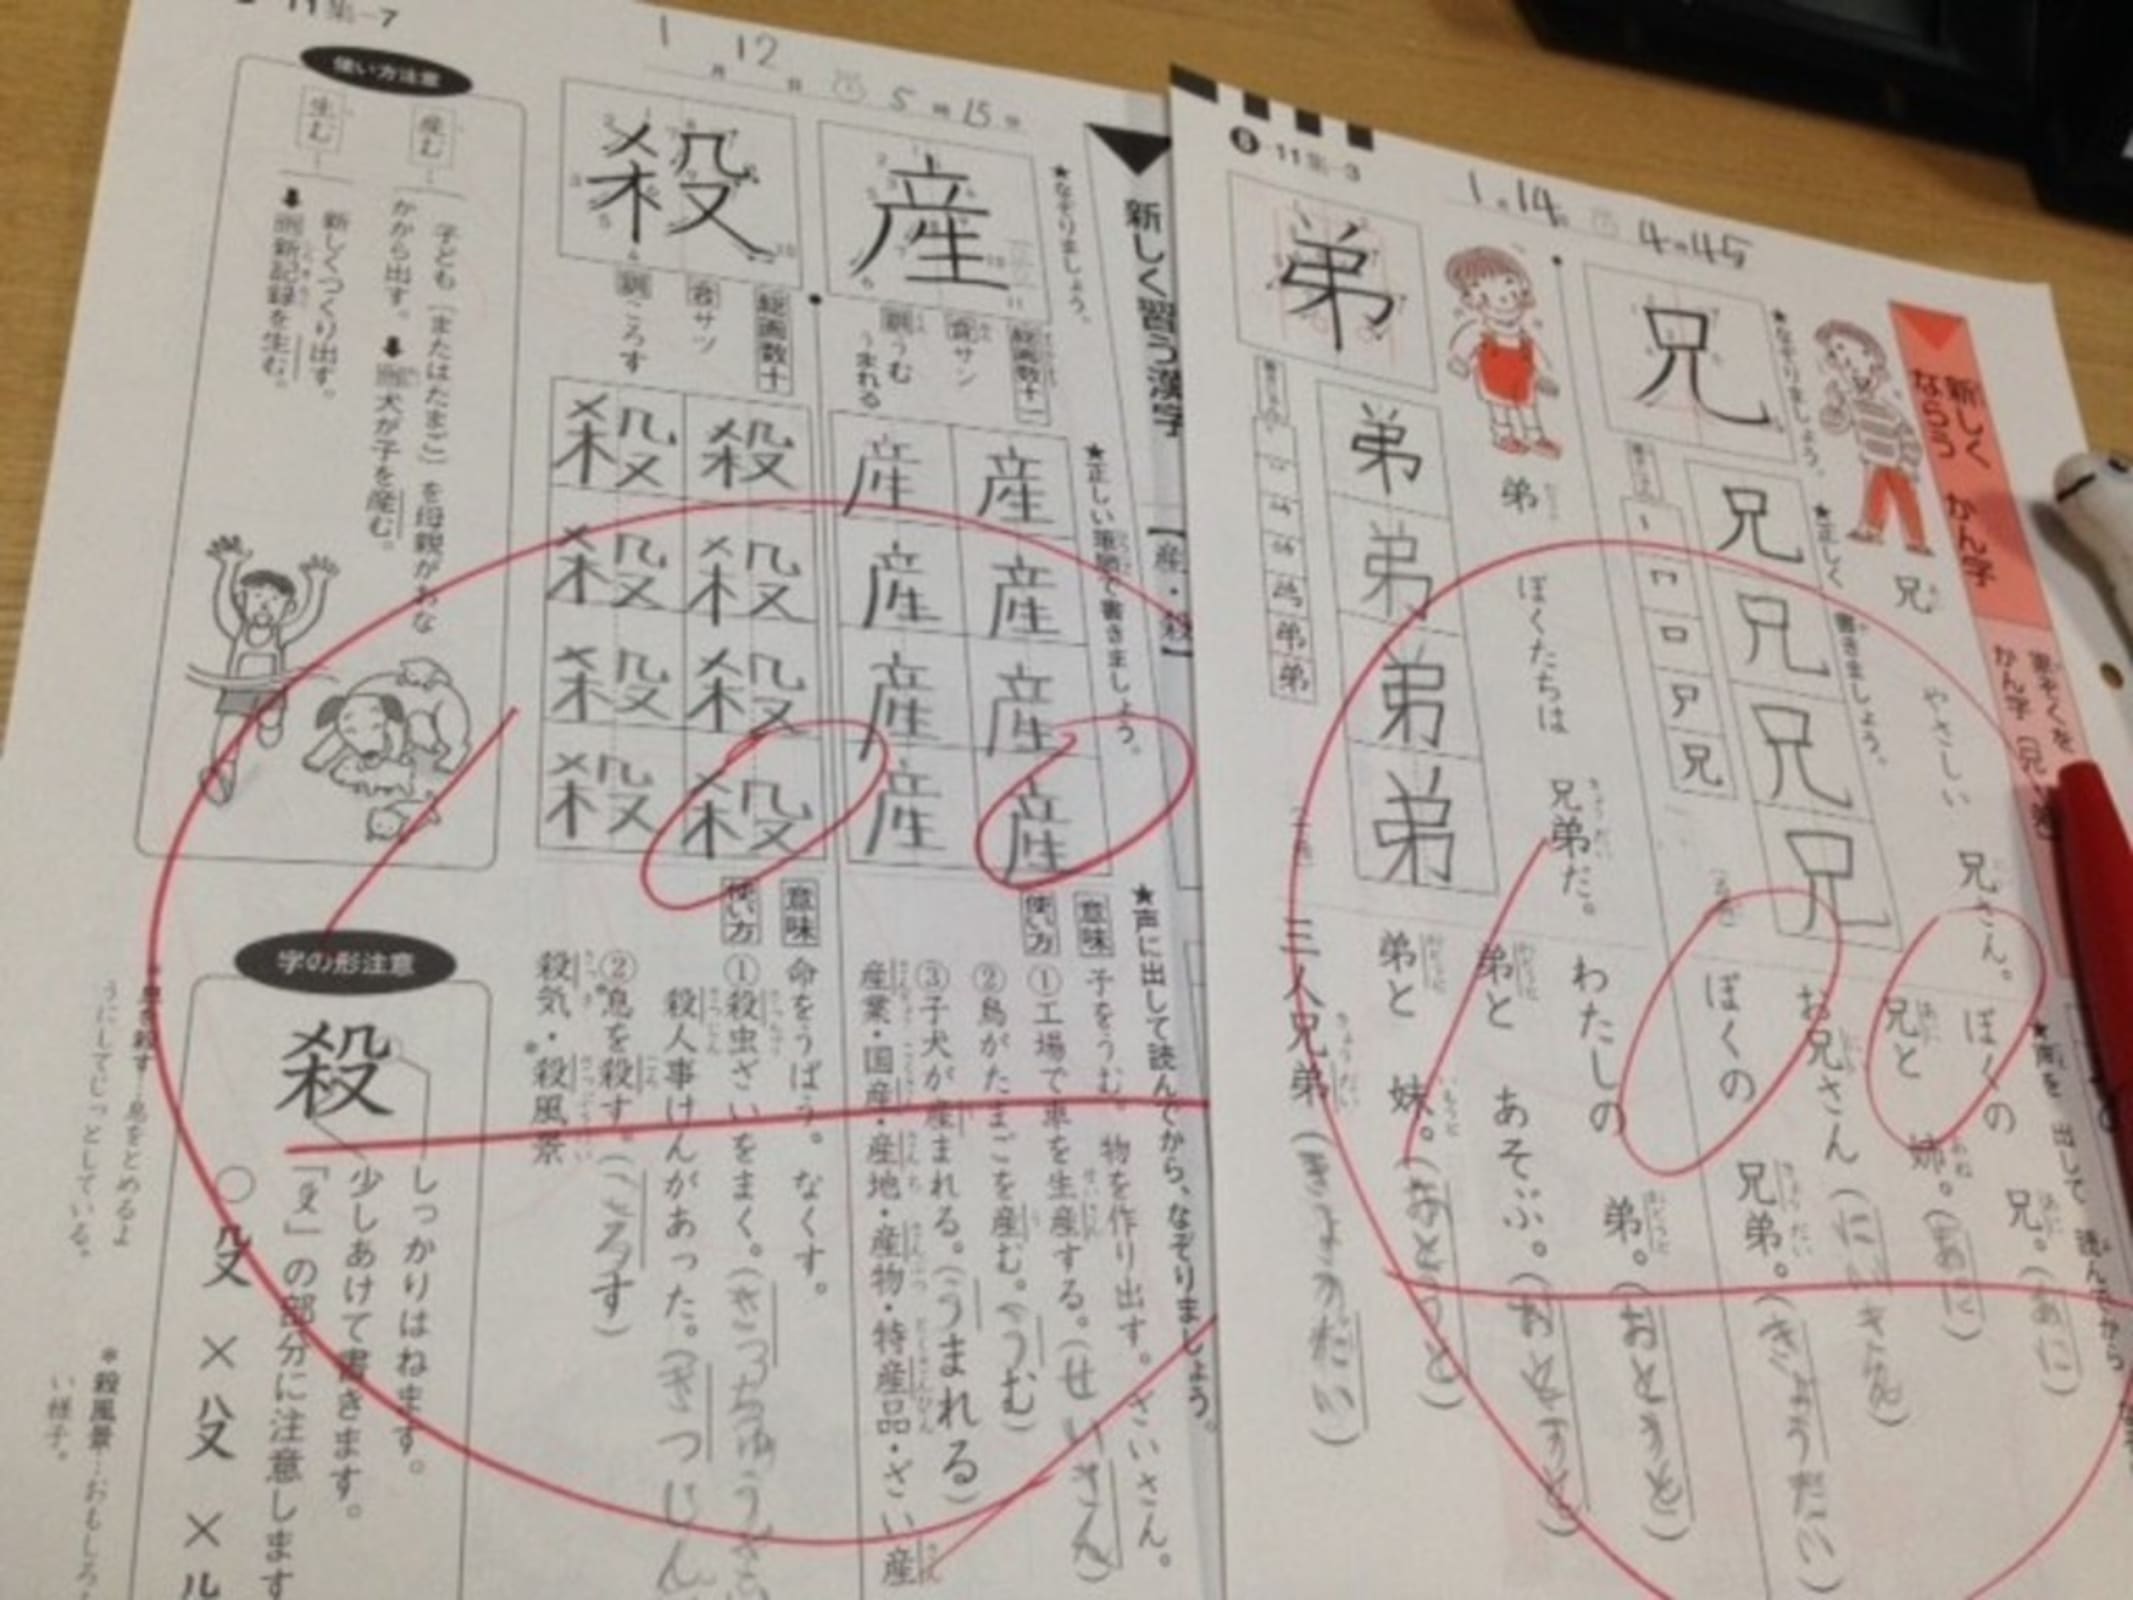 11集-7
1月12日 5時15分
★なぞりましょう。
新しく習う漢字
【産・殺】
産
総画数十一
音サン
訓うむ
うまれる
★正しい筆順で書きましょう。
産 産
産 産
産 産
産 産
★声に出して読んでから、なぞりましょう。
意味 子をうむ。物を作り出す。ざいさん。
使い方 ①工場で車を生産する。(せいさん)
②鳥がたまごを産む。(うむ)
③子犬が産まれる。(うまれる)
産業・国産・産地・産物・特産品・ざい産
殺
総画数十
音サツ
訓ころす
殺 殺
殺 殺
殺 殺
殺 殺
意味 命をうばう。なくす。
使い方 ①殺虫ざいをまく。
殺人事けんがあった。(さつじん
②*息を殺す。(ころす)
殺気・*殺風景
使い方注意
産む
子ども〔またはたまご〕を母親がおな
かから出す。
➡例犬が子を産む。
生む
新しくつくり出す。
➡例新記録を生む。
字の形注意
殺
しっかりはねます。
少しあけて書きます。
「殳」の部分に注意します
○
×
×
*息を殺す…息をとめるよ
うにしてじっとしている。
*殺風景…おもしろ
い様子。
B 11集-3
1月14日 4時45
新しく
ならう かん字
かん字
兄
★なぞりましょう。
★正しく 書きましょう。
兄
兄
兄
兄
兄
やさしい 兄さん。
弟
弟
弟
弟
弟
弟
ぼくたちは 兄弟だ。
ぼくの 兄。(あに)
兄と 姉。(あに)
お兄さん(にいさん)
ぼくの 兄弟。(きょうだい)
わたしの 弟。(おとうと)
弟と あそぶ。(おとうと)
弟と 妹。(おとうと)
三人兄弟(きょうだい)
100
100